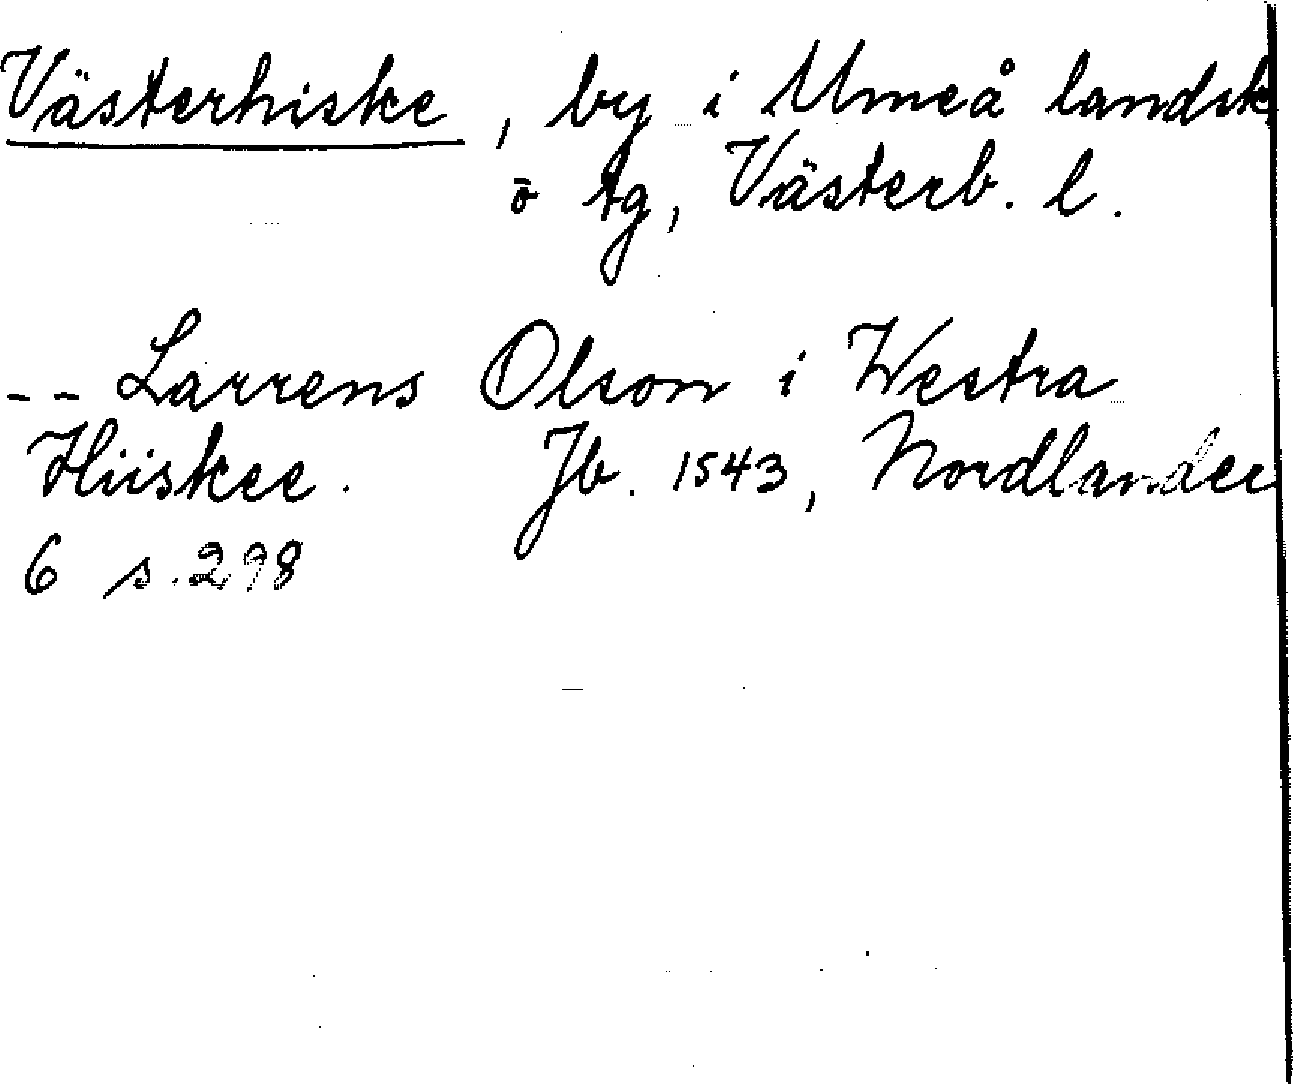 Västerhiske, by i Umeå landsk
o tg, Västerb. l.
-- Larrens Olson i Westra
Hiiskee. Jb. 1543, Nordlander
6 s. 298